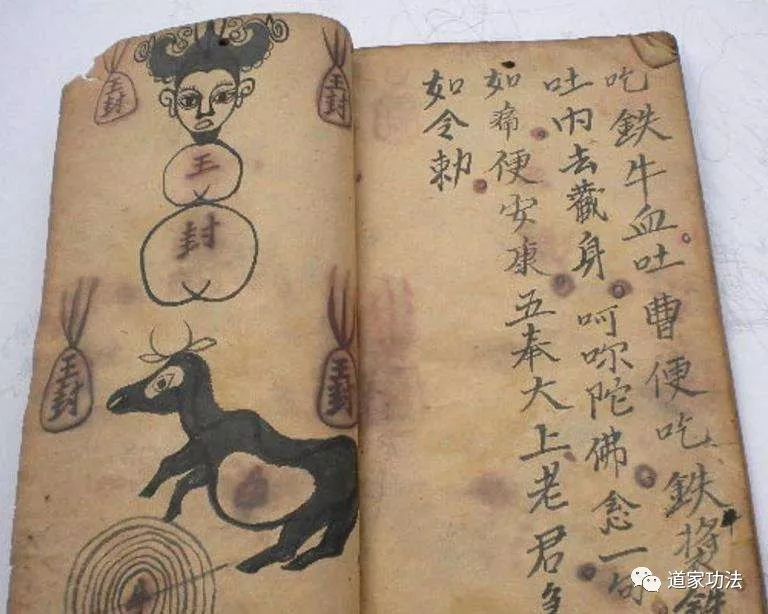 王封
王封
王
封
王封
王封
吃鉄牛血吐曹便吃鉄將
吐內去藏身呵陀佛念一句
如痛便安康五奉大上老君急
如令勅
道家功法